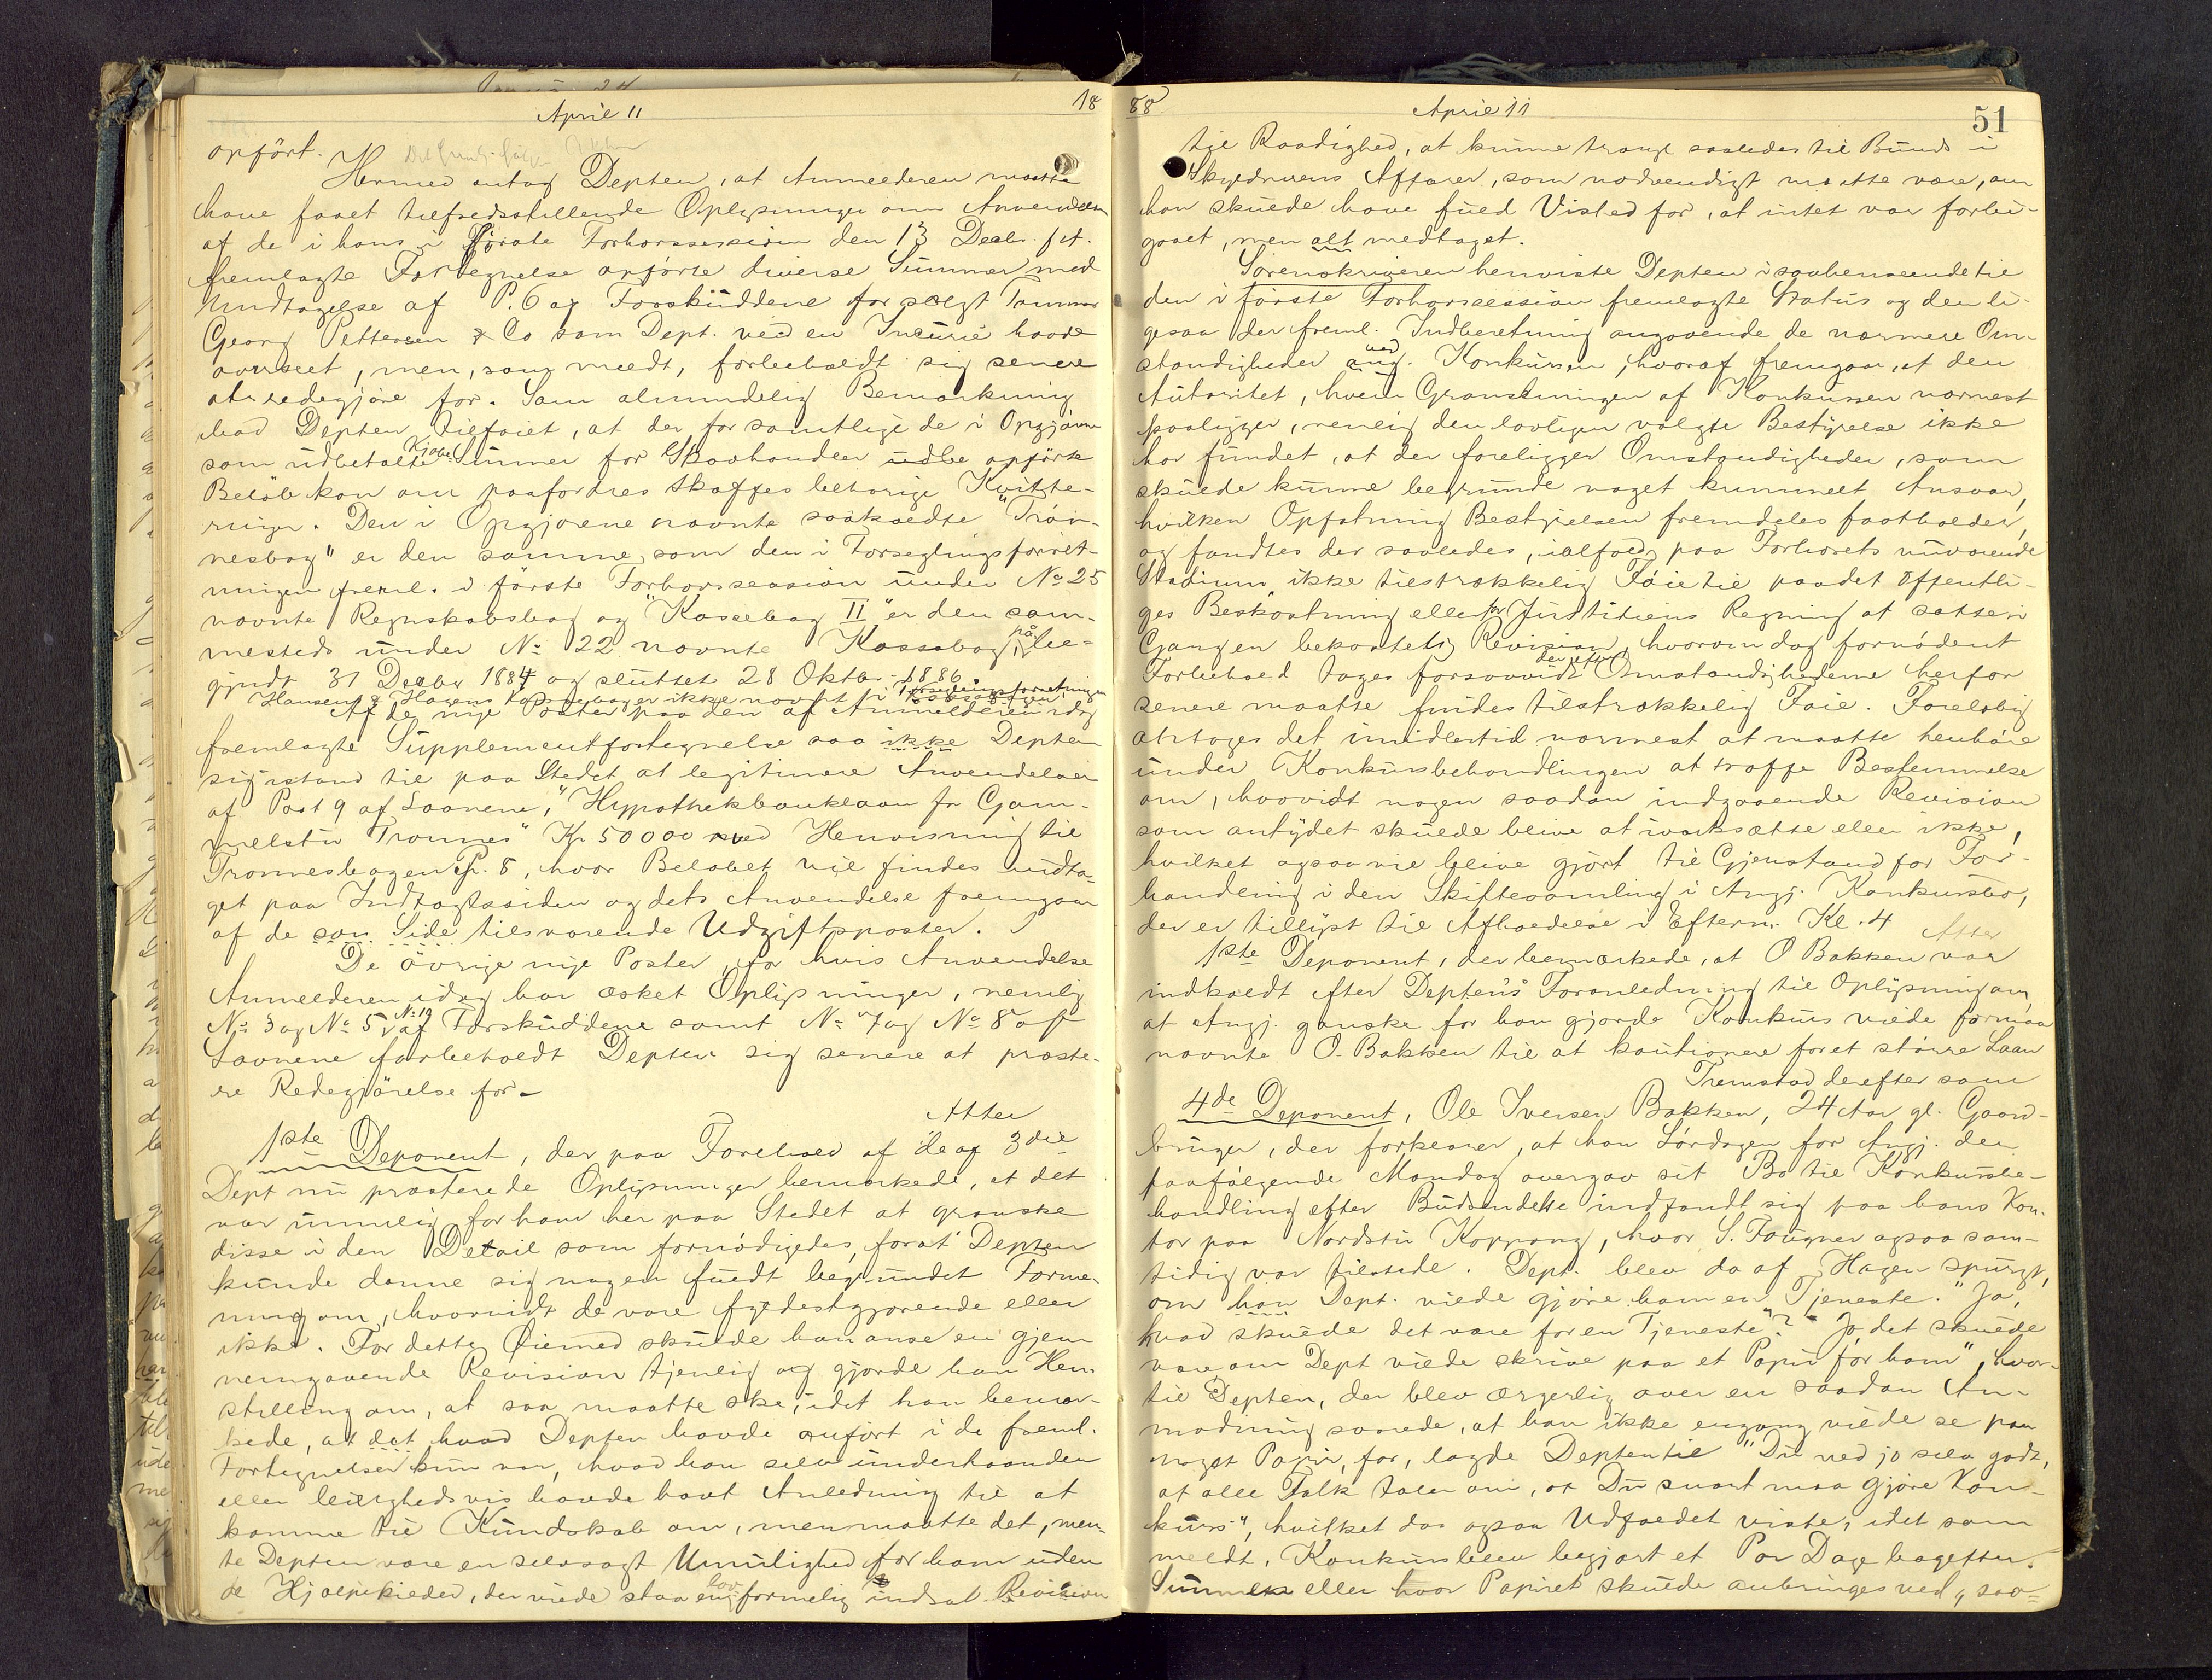 April 11
18
opført.
Hermed antog Depten, at Anmelderen maatte
have faaet tilfredsstillende Oplysninger om Anvendelsen
af de i hans i første Forhørssession den 13 Decbr. f.A.
fremlagte Fortegnelse opførte diverse Summer med
Undtagelse af P. 6 af Forskuddene for solgt Tømmer
Georg Pettersen & Co som Dept. ved en Incurie havde
overseet, men, som meldt, forbeholdt sig senere
at redegjøre for. Som almindelig Bemærkning
bad Depten tilføiet, at der for samtlige de i Opgjøren
som udbetalte Kjøbe Summer for Skovhandler udbe opførte
Beløb kan om paafordres skaffes behørige Kvitte-
ringer. Den i Opgjørene nævnte saakaldte "Trøn-
nesbog" er den samme, som den i Forseglingsforret-
ningen freml. i første Forhørssession under No 25
nævnte Regnskabsbog og "Kassebog II" er den sam-
mesteds under No 22 nævnte Kassabog, på be-
gyndt 31 Decbr 1884 og sluttet 28 Oktbr. 1886
Hansen & Hagens Kassebog er ikke nævnt i Forseglingsforretningen
Af de nye Poster paa den af Anmelderen idag
fremlagte Supplementfortegnelse saa ikke Depten
sig istand til paa Stedet at legitimere Anvendelsen
af Post 9 af Laanene, "Hypothekbanklaan for Gam-
melstu Trønnes" Kr 50000 med Henvisning til
Trønnesbogen P. 8, hvor Beløbet vil findes indta-
get paa Indtægtssiden og dets Anvendelse fremgaar
af de sam. Side tilsvarende Udgiftsposter.
De øvrige nye Poster, for hvis Anvendelse
Anmelderen idag har æsket Oplysninger, nemlig
No 3 og No 5, No 19 af Forskuddene samt No 7 og No 8 af
Laanene forbeholdt Depten sig senere at præste-
re Redegjørelse for.
Atter
1ste Deponent, der paa Forehold af de af 3die
Dept nu præsterede Oplysninger bemærkede, at det
var umulig for ham her paa Stedet at granske
disse i den Detail som fornødigedes, forat Depten
kunde danne sig nogen fuldt begrundet Forme-
ning om, hvorvidt de vare fyldestgjørende eller
ikke. For dette Øiemed skulde han anse en gjen
nemgaaende Revision tjenlig og gjorde han Hen-
stilling om, at saa maatte ske, idet han bemær-
kede, at det hvad Depten havde anført i de freml.
Fortegnelser kun var, hvad han selv underhaanden
eller leilighedsvis havde havt Anledning til at
komme til Kundskab om, men maatte det, men-
te Depten være en selvsagt Umulighed for ham uden
de Hjælpekilder, der vilde staa en lov formelig indsat Revision
88
April 11
51
tje Raadighed, at kunne trænge saaledes til Bunds i
Skyldnerens Affærer, som nødvendigt maatte være, om
han skulde have fuld Vished for, at intet var forbi-
gaaet, men alt medtaget.
Sorenskriveren henviste Depten i saahenseende til
den i første Forhørssession fremlagte Status og den li-
gesaa der freml. Indberetning angaaende de nærmere Om-
stændigheder ved ang. Konkursen, hvoraf fremgaar, at den
Autoritet, hvem Granskningen af Konkursen nærmest
paaligger, nemlig den lovligen valgte Bestyrelse ikke
har fundet, at der foreligger Omstændigheder, som
skulde kunne begrunde noget kriminelt Ansvar,
hvilken Opfatning Bestyrelsen fremdeles fastholder,
og fandtes der saaledes, ialfald paa Forhørets nuværende
Stadium ikke tilstrækkelig Føie til paa det offentli-
ges Beskostning eller for Justitiens Regning at sætte i
Gangen bekostelig Revision, hvorom dog fornødent
Forbehold tages forsaavidt der efter Omstændighederne herfor
senere maatte findes tilstrækkelig Føie. Foreløbig
antages det imidlertid nærmest at maatte henhøre
under Konkursbehandlingen at træffe Bestemmelse
om, hvorvidt nogen saadan indgaaende Revision
som antydet skulde blive at iværksætte eller ikke,
hvilket ogsaa vil blive gjort til Gjenstand for For-
handling i den Skiftesamling i Angj. Konkursbo,
der er tillyst til Afholdelse i Efterm. Kl. 4
Atter
1ste Deponent, der bemærkede, at O Bakken var
indkaldt efter Depten's Foranledning til Oplysning om,
at Angj. ganske før han gjorde Konkurs vilde formaa
nævnte O. Bakken til at kautionere for et større Laan
Fremstod derefter som
4de Deponent, Ole Iversen Bakken, 24 Aar gl. Gaard-
bruger, der forklarer, at han Lørdagen før Angj. den
paafølgende Mandag overgav sit Bo til Konkursbe-
handling efter Budsendelse indfandt sig paa hans Kon-
tor paa Nordstu Koppang, hvor S. Fougner ogsaa sam-
tidig var tilstede. Dept. blev da af Hagen spurgt,
om han Dept. vilde gjøre ham en Tjeneste. "Ja,
hvad skulde det være for en Tjeneste"? "Jo, det skulde
være om Dept vilde skrive paa et Papir for ham", hvor-
til Depten, der blev ærgerlig over en saadan An-
modning svarede, at han ikke engang vilde se paa
noget Papir, for, lagde Depten til "Du ved jo selv godt,
at alle Folk taler om, at Du snart maa gjøre Kon-
kurs", hvilket da ogsaa Udfaldet viste, idet som
meldt, Konkurs blev begjært et Par Dage bagefter.
Summen eller hvor Papiret skulde anbringes ved, saa-